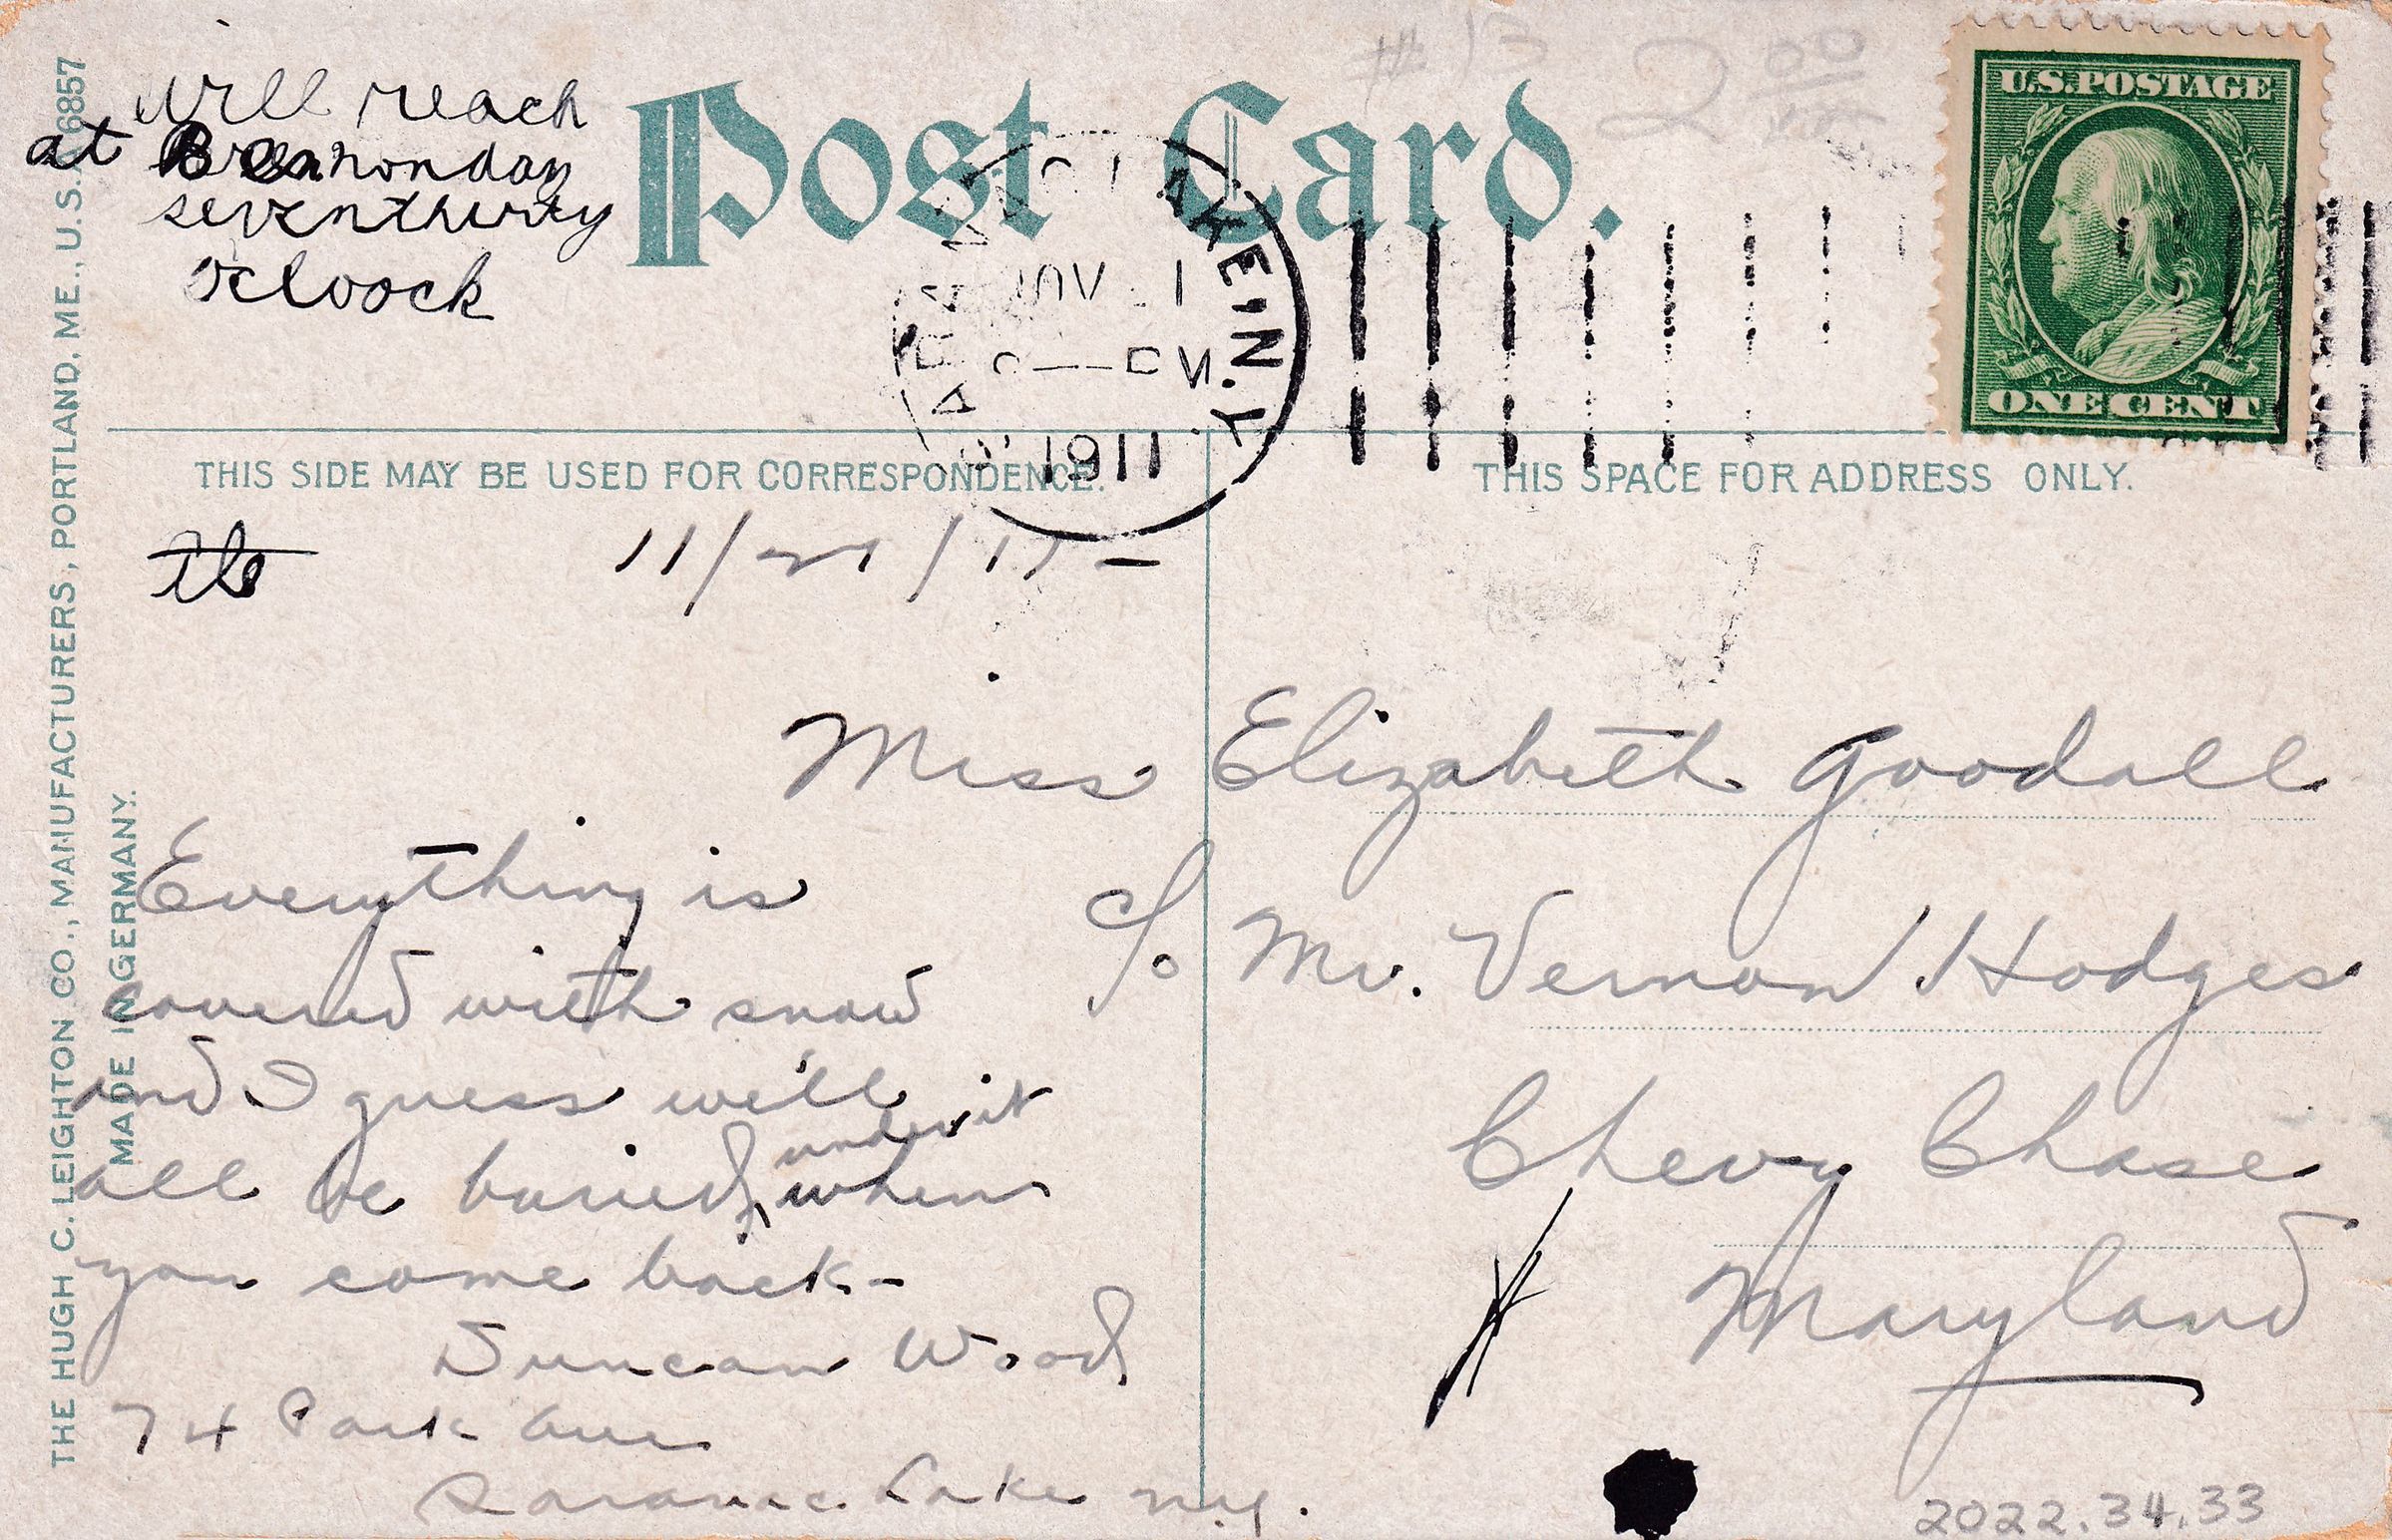 # 13 2 00
Will reach
at B monday
seventhirty
o'cloock
Post Card.
U.S. POSTAGE
ONE CENT
SARANAC LAKE N.Y.
NOV 1
PM
1911
THIS SIDE MAY BE USED FOR CORRESPONDENCE.
THIS SPACE FOR ADDRESS ONLY.
11/21/11 -
Miss Elizabeth Goodall
c/o Mr. Vernon Hodges
Chevy Chase
Maryland
Everything is
covered with snow
and I guess we'll
all be buried, under it when
you come back -
Duncan Wood
74 Park Ave
Saranac Lake N.Y.
THE HUGH C. LEIGHTON CO., MANUFACTURERS, PORTLAND, ME., U.S.A. 6857
MADE IN GERMANY.
2022.34.33